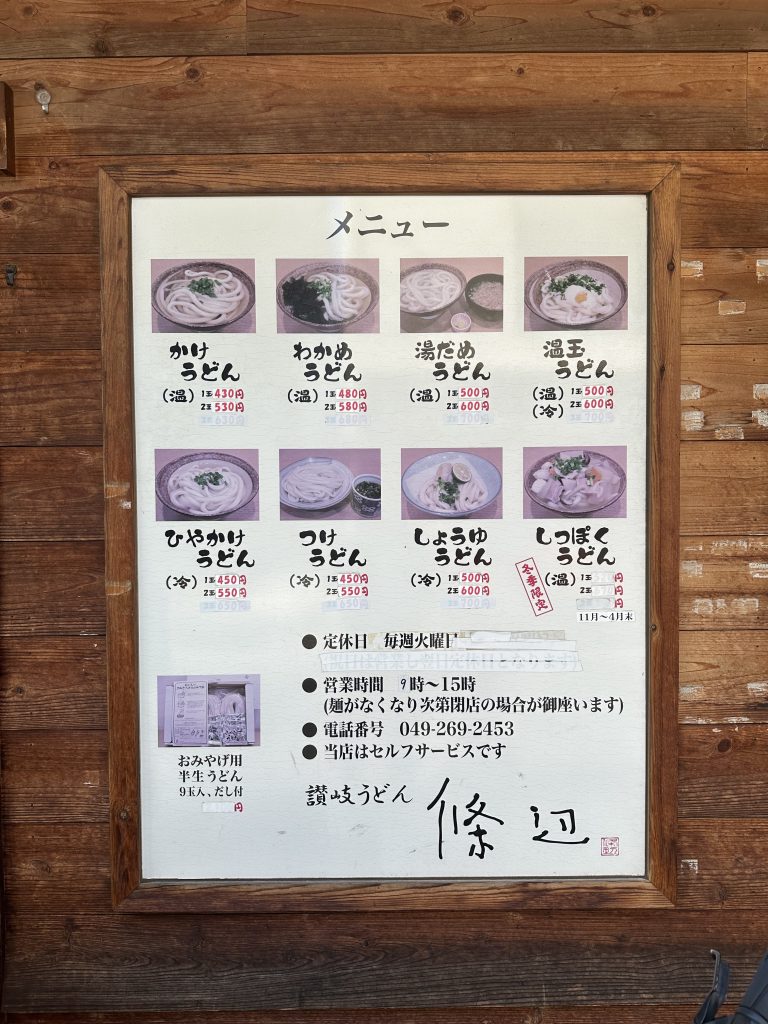 メニュー
かけ
うどん
(温) 1玉430円
2玉530円
わかめ
うどん
(温) 1玉480円
2玉580円
湯だめ
うどん
(温) 1玉500円
2玉600円
温玉
うどん
(温) 1玉500円
(冷) 2玉600円
ひやかけ
うどん
(冷) 1玉450円
2玉550円
つけ
うどん
(冷) 1玉450円
2玉550円
しょうゆ
うどん
(冷) 1玉500円
2玉600円
しっぽく
うどん
冬季限定
(温) 1玉 円
2玉 円
円
11月〜4月末
● 定休日 毎週火曜日
● 営業時間 9時〜15時
(麺がなくなり次第閉店の場合が御座います)
● 電話番号 049-269-2453
● 当店はセルフサービスです
おみやげ用
半生うどん
9玉入、だし付
円
讃岐うどん
條辺